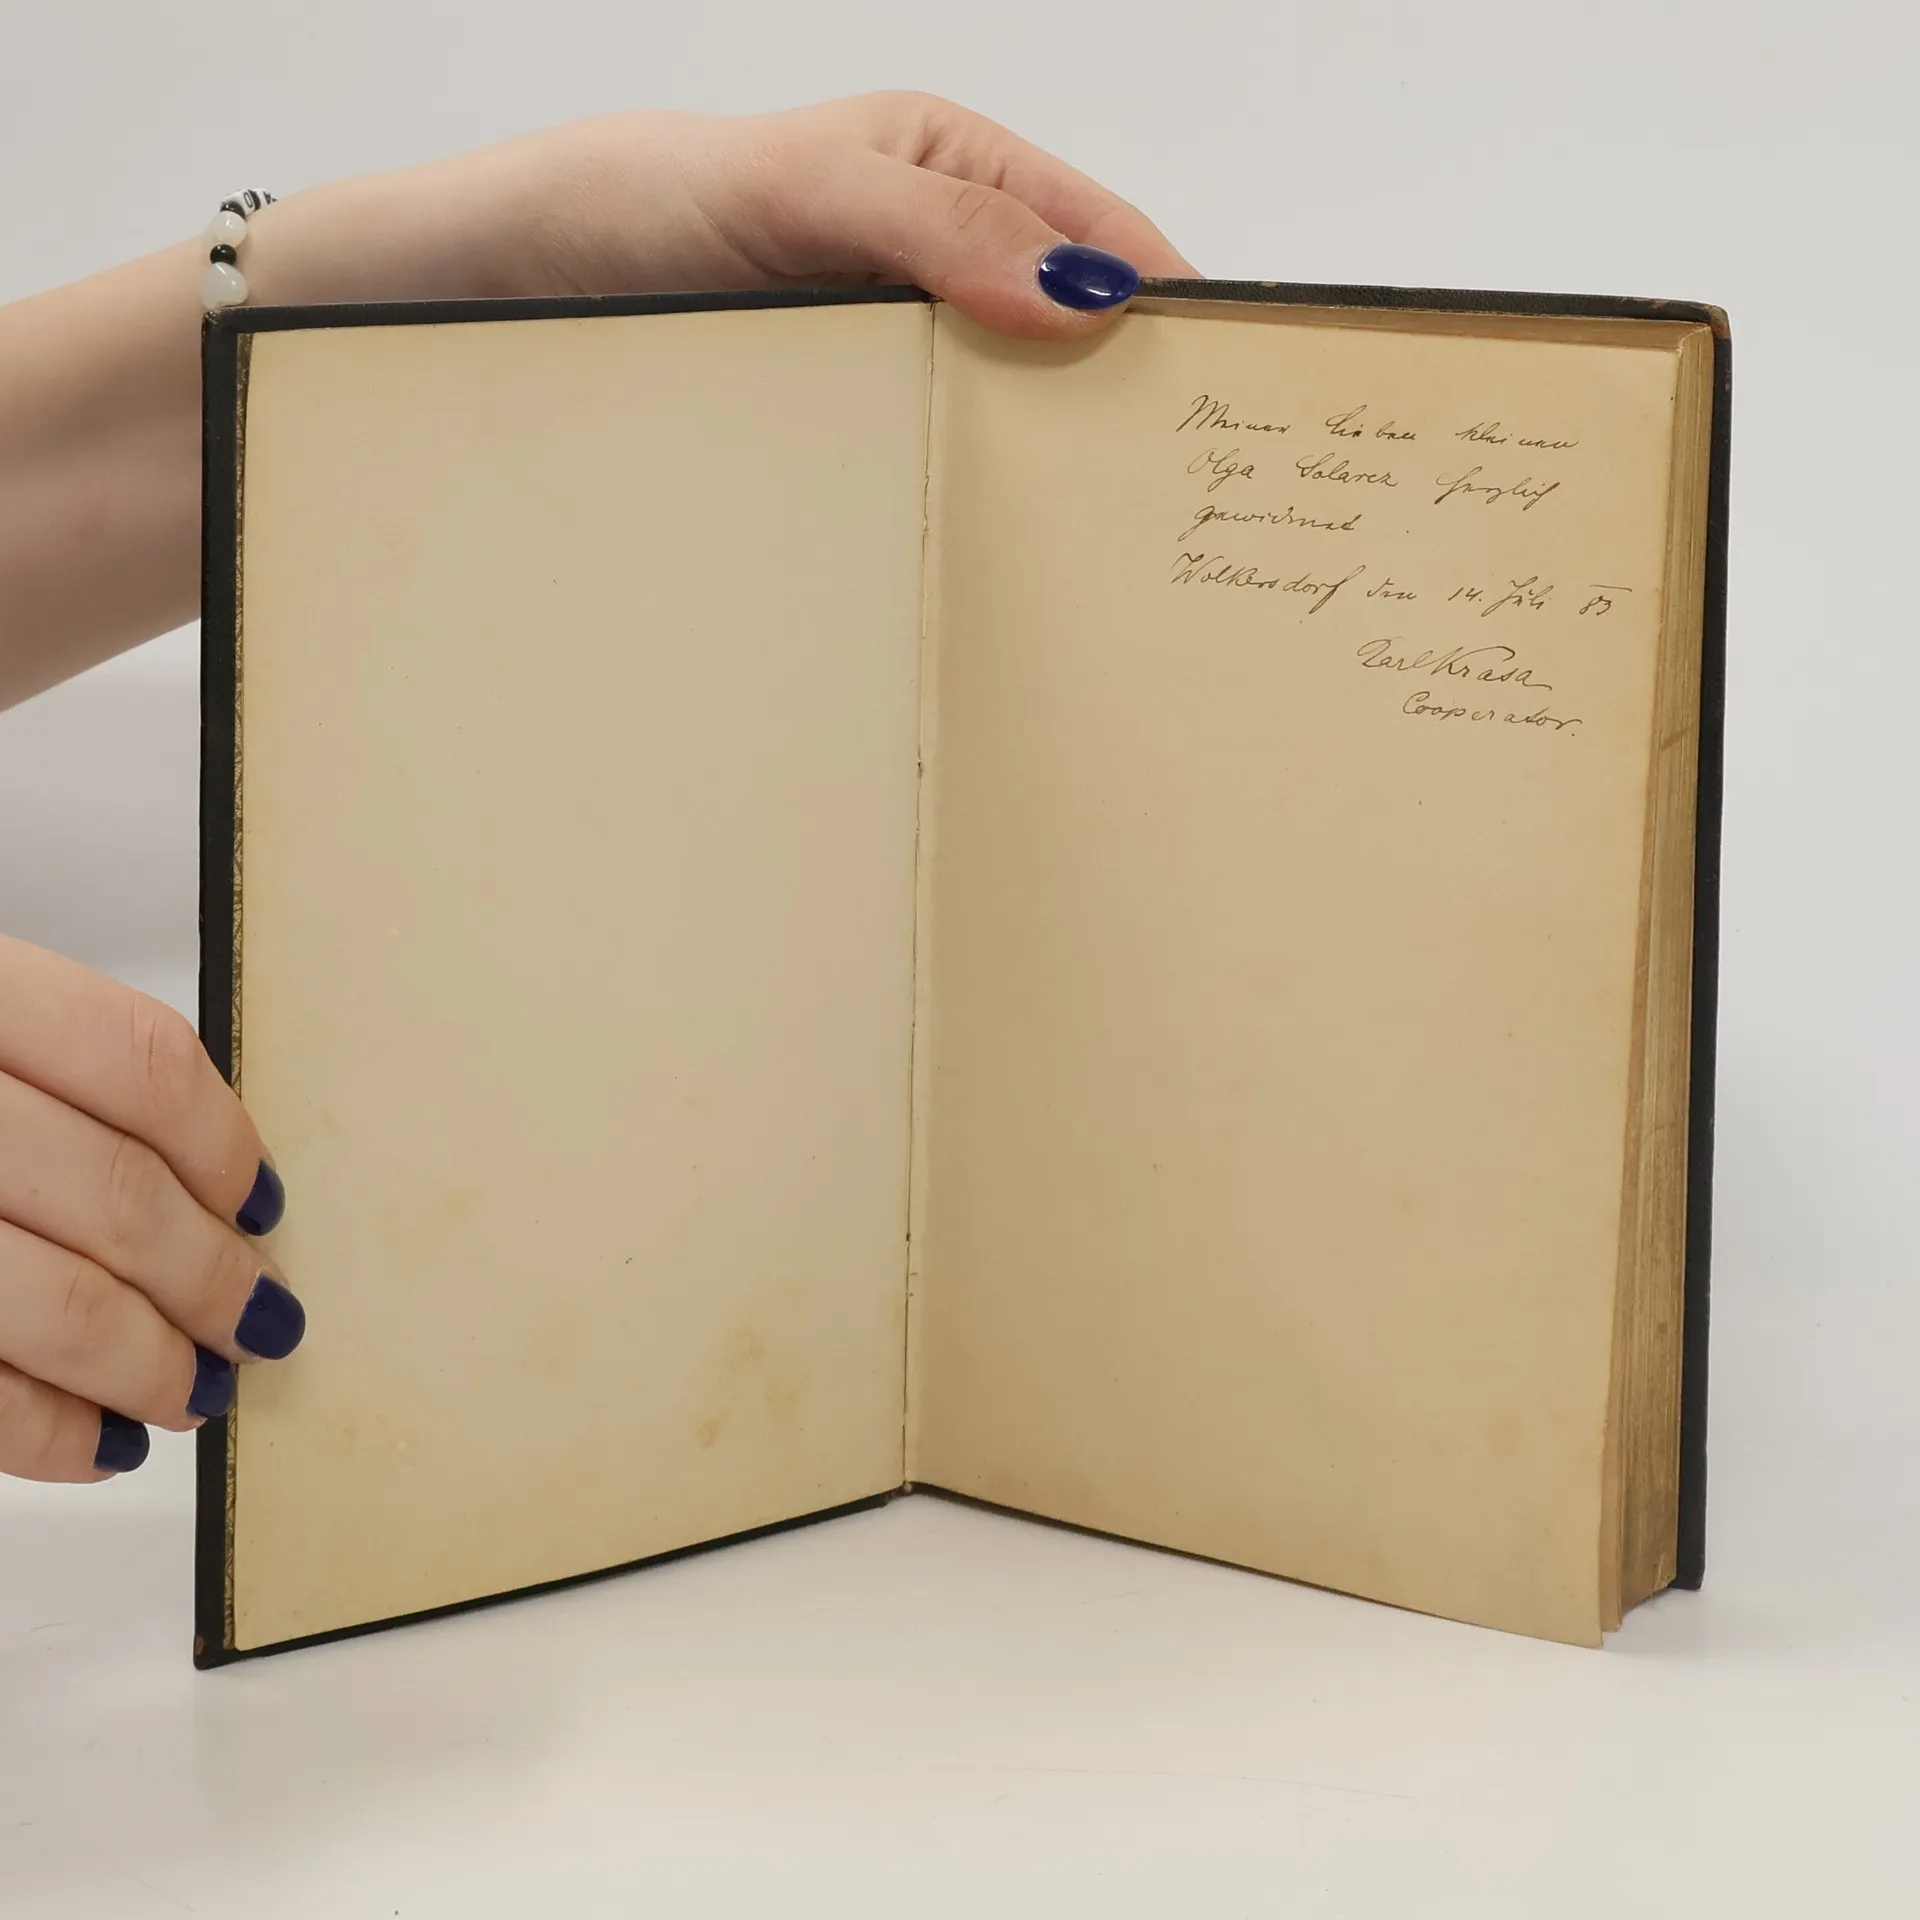 Meiner lieben kleinen
Olga Solarez herzlich
gewidmet
Wolkersdorf den 14. Juli 83
Karl Krasa
Cooperator.